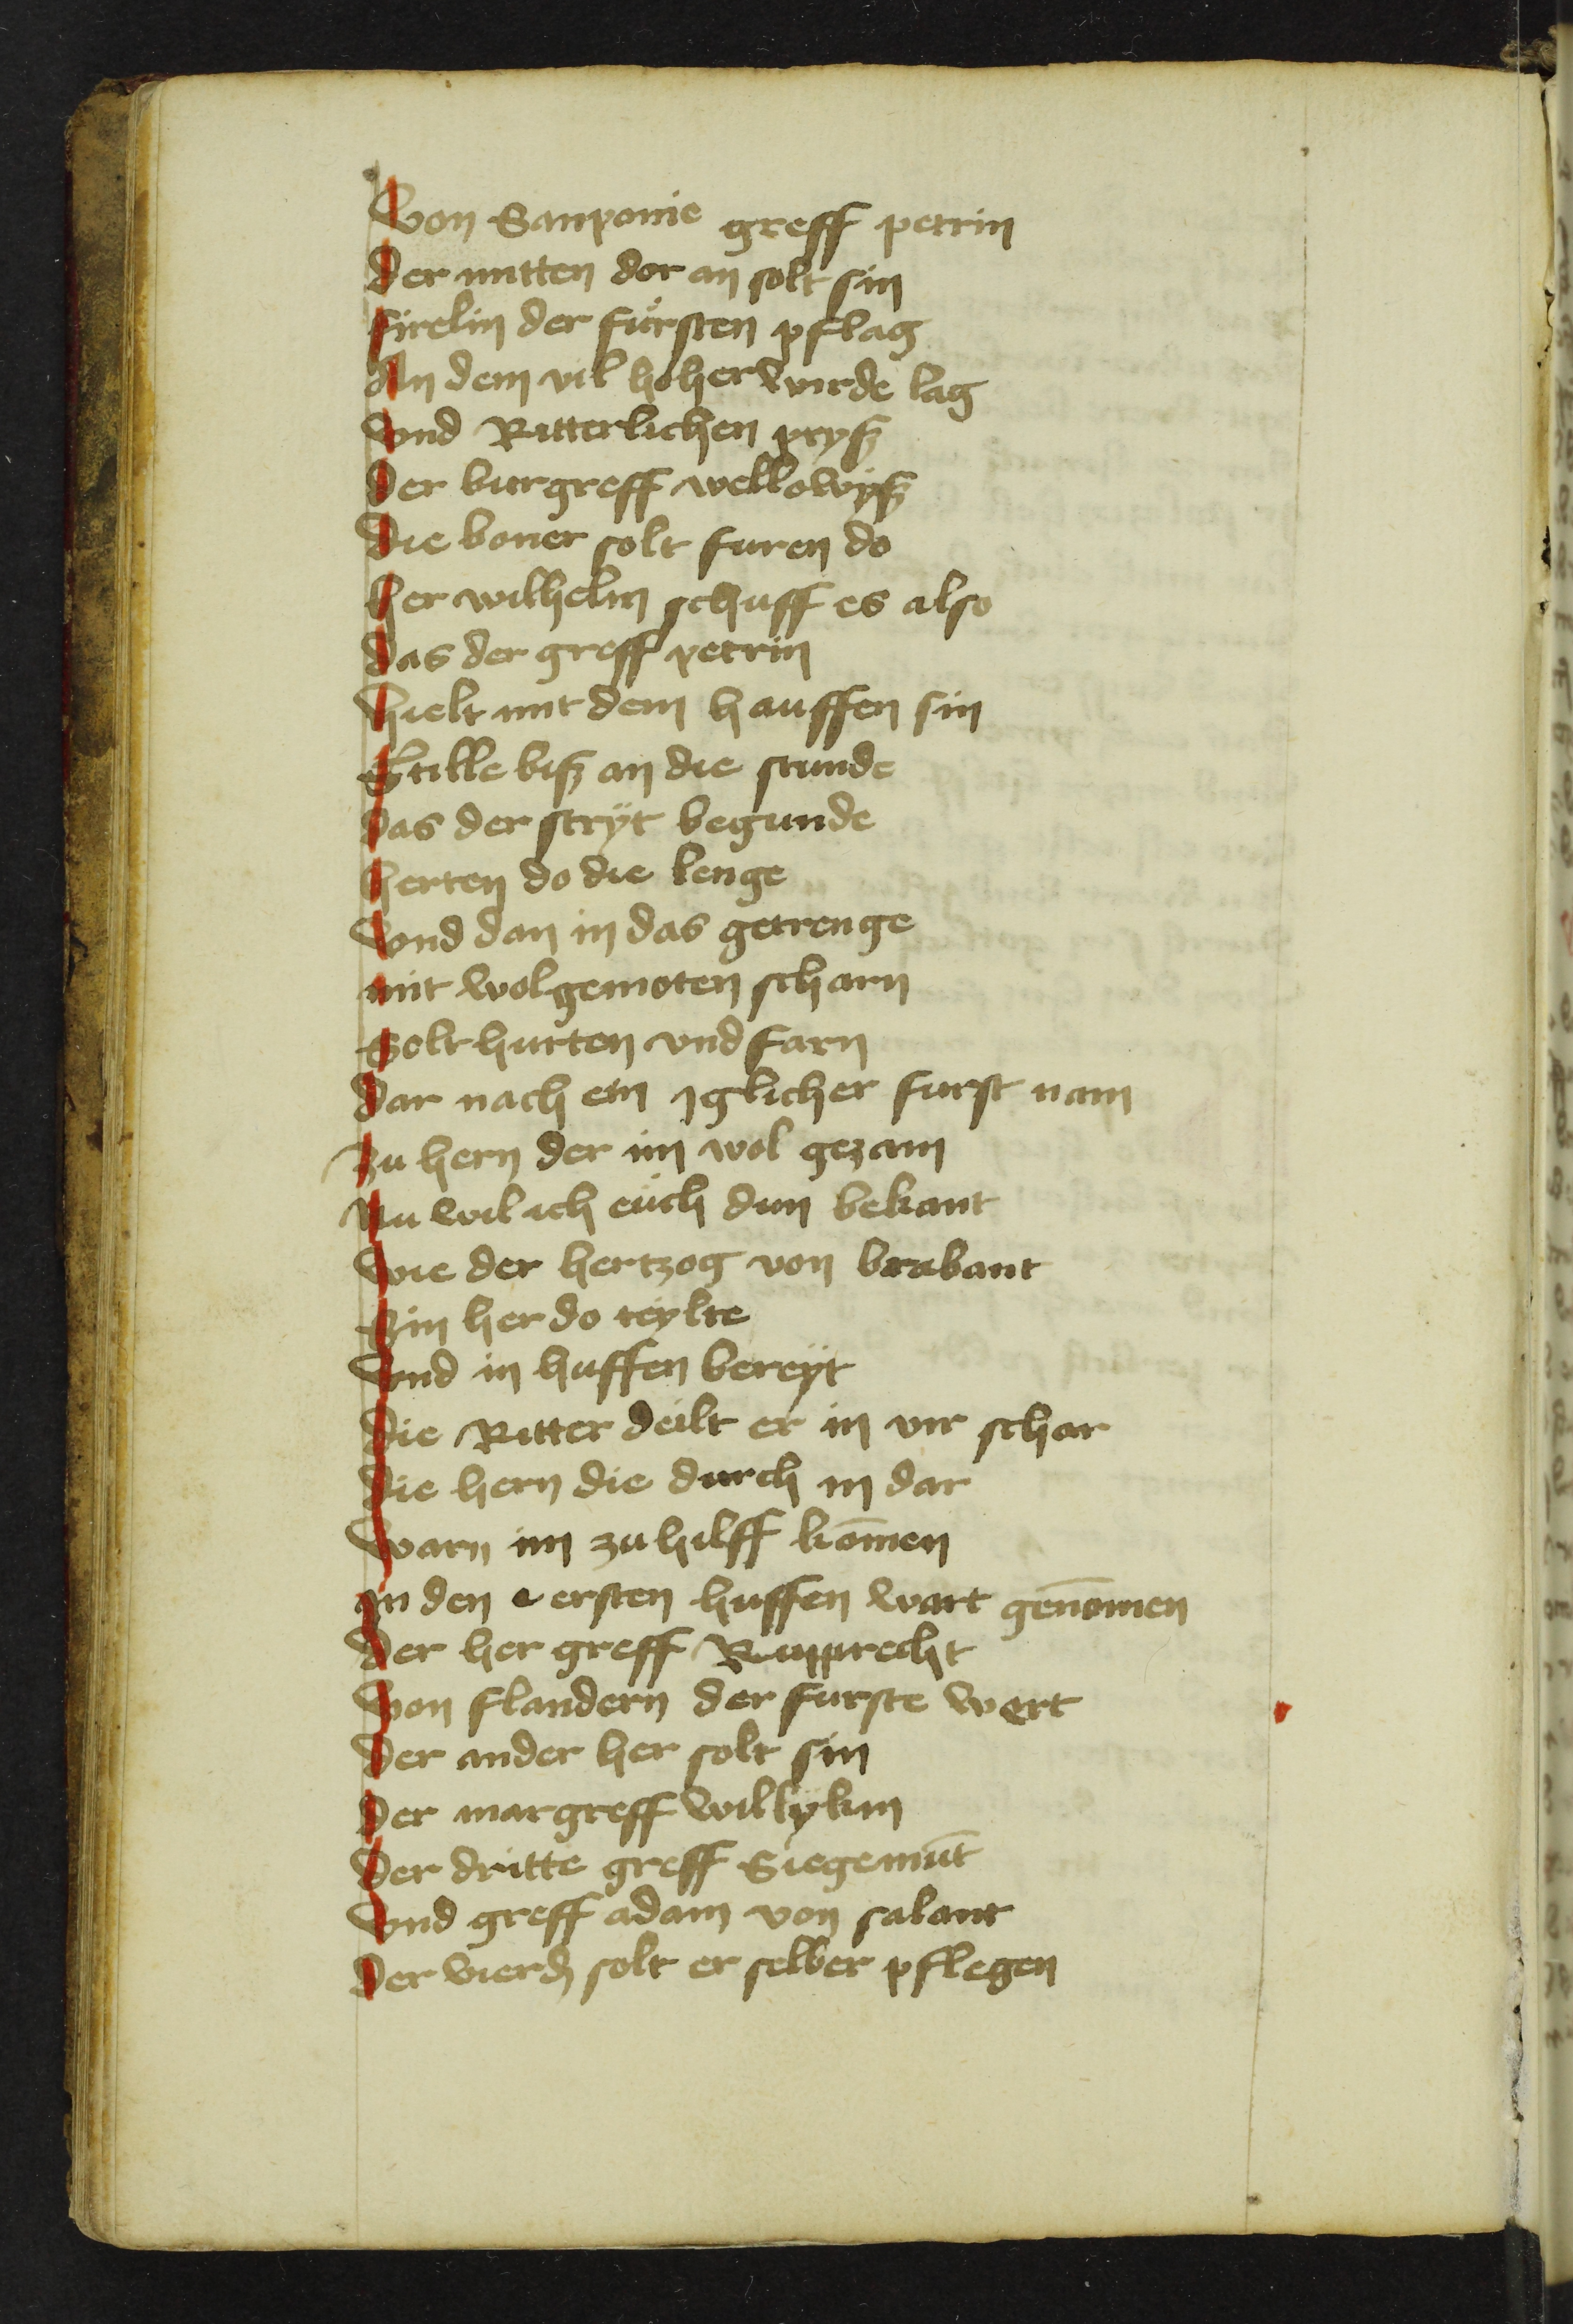 Von Sanponie greff petrin
Der mitten dor an solt sin
Firelin der fürsten pflag
An dem vil hoher wirde lag
Vnd Ritterlichen pryß
Der burgreff wellowyß
Die boner solt furen do
Her wilhelm schuff es also
Das der greff petrin
Hielt mit dem hauffen sin
Stille biß an die stunde
Das der stryt begunde
Herten do die lenge
Vnd dan in das getrenge
mit wolgemoten scharn
Solt hurten vnd farn
Dar nach ein jglicher furst nam
Zu hern der im wol gezam
Nu wil ich eüch dun bekant
Wie der hertzog von brabant
Sin her do teylte
Vnd in huffen bereyt
Die Ritter deilt er in vir schar
Die hern die durch in dar
Warn im zu hilff kōmen
In den ersten huffen wart genōmen
Der her greff Rupprecht
Von flandern der furste wert
Der ander her solt sin
Der margreff willykin
Der dritte greff Siegemūt
Vnd greff adam von salant
Der vierd solt er selber pflegen